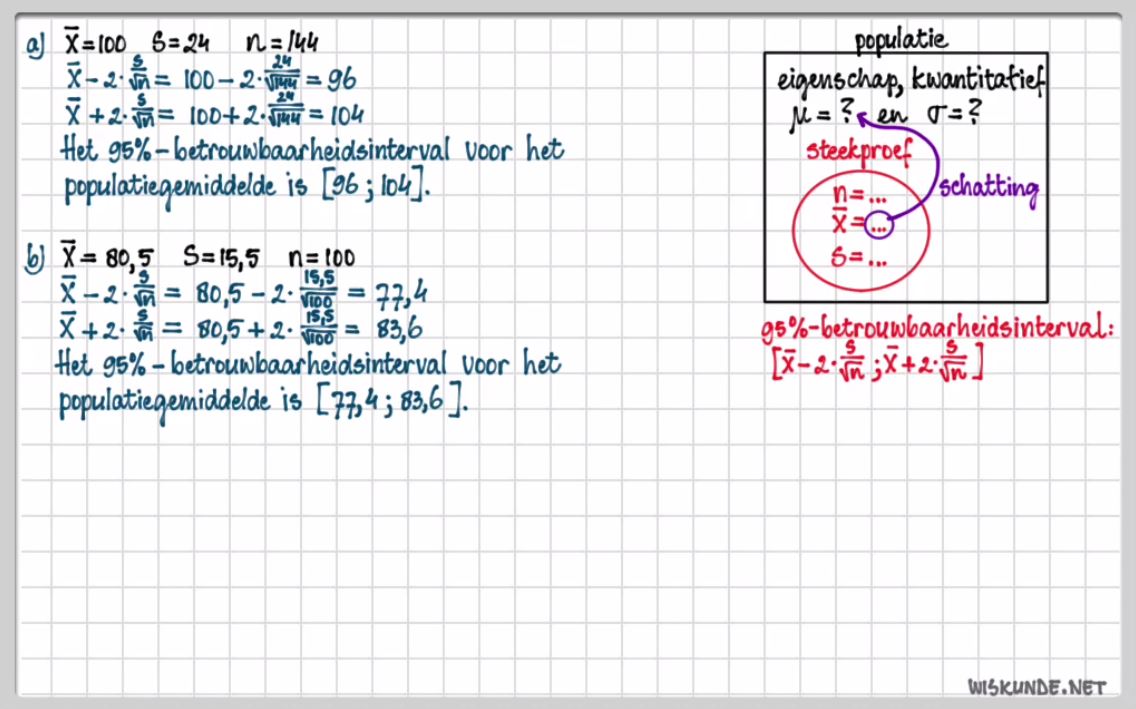 a) x̄ = 100 S = 24 n = 144
x̄ − 2·s/√n = 100 − 2·24/√144 = 96
x̄ + 2·s/√n = 100 + 2·24/√144 = 104
Het 95%-betrouwbaarheidsinterval voor het
populatiegemiddelde is [96 ; 104].
b) x̄ = 80,5 S = 15,5 n = 100
x̄ − 2·s/√n = 80,5 − 2·15,5/√100 = 77,4
x̄ + 2·s/√n = 80,5 + 2·15,5/√100 = 83,6
Het 95%-betrouwbaarheidsinterval voor het
populatiegemiddelde is [77,4 ; 83,6].
populatie
eigenschap, kwantitatief
μ = ? en σ = ?
steekproef
n = ...
x̄ = ...
s = ...
schatting
95%-betrouwbaarheidsinterval:
[x̄ − 2·s/√n ; x̄ + 2·s/√n]
WISKUNDE.NET